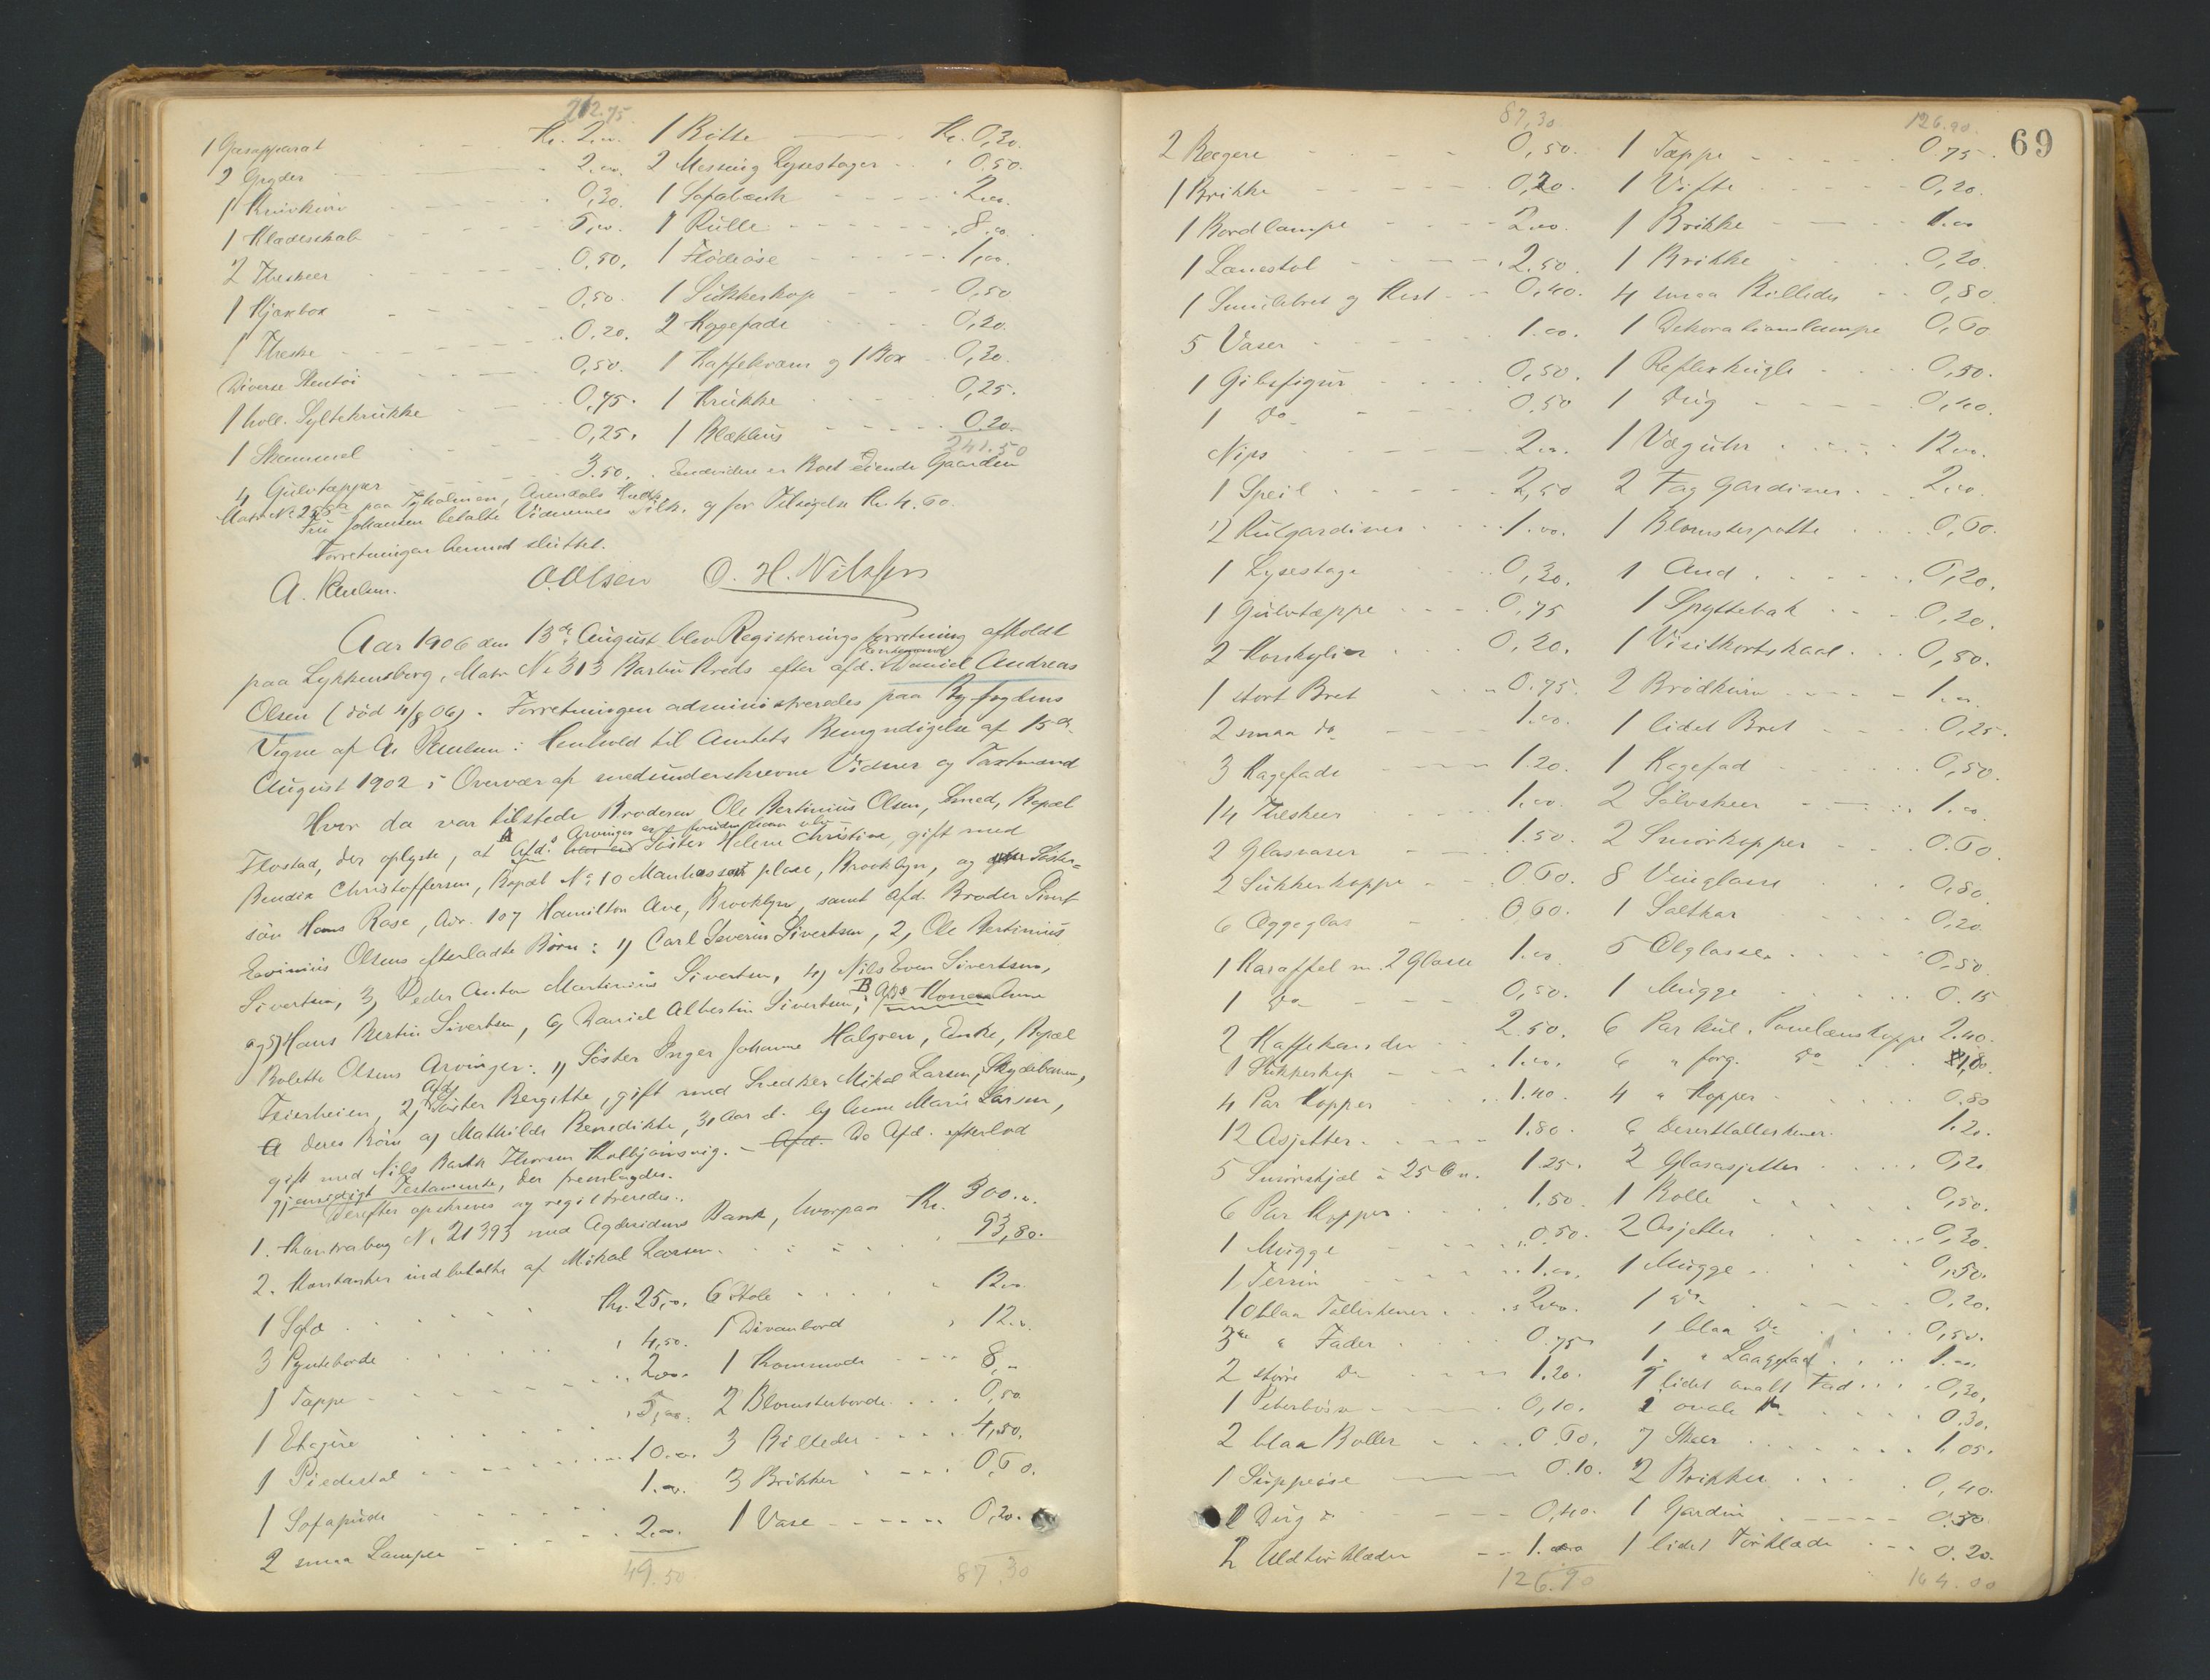 212.75
1 Gasapparat Kr. 2,00. 1 Bøtte Kr. 0,30.
2 Gryder 2,00. 2 Messing Lysestager 0.50.
1 Knivkurv 0,30. 1 Sofabænk 2,00.
1 Klædeskab 5,00. 1 Rulle 8,00
2 Theskeer 0,50. 1 Flødeøse 1,00.
1 Kjøxbox 0,50. 1 Sukkerkop 0,50
1 Theske 0.20. 2 Kaggefade 0,20.
Diverse Stentøi 0,50. 1 Kaffekværn og 1 Box 0,30.
1 holl. Syltekrukke 0,75. 1 Krukke 0,25.
1 Skammel 0,25. 1 Blækhus 0.20.
241.50
4 Gulvtæpper 3.50. Endvidere er Boet eiende Gaarden
Matr. No. paa Tyholmen, Arendals Kreds.
Fru Johansen betalte Vidnernes og for Tilsigelse Kr. 4.60.
Forretningen hermed sluttet.
A. O. Olsen O. H. Nilssen
Aar 1906 den 13de August blev Registreringsforretning afholdt
paa Lykkensberg, Matr No 313 Barbu Kreds efter afd. Daniel Andreas
Olsen (død 4/8 06). Forretningen administreredes paa Byfogdens
Vegne af i Henhold til Amtets Bemyndigelse af 15de
August 1902 i Overvær af medunderskrevne Vidner og Taxtmænd
Hvor da var tilstede Broderen Ole Bertinius Olsen, Smed, Bopæl
Flostad, der oplyste, at A Afd.s Arvinger er foruden ham Søster Helene Christine, gift med
Bendix Christoffersen, Bopæl No 10 place, Brooklyn, og Søster-
søn Hans Rose, Adr. 107 Hamilton Ave, Brooklyn, samt afd. Broder Sivert
Olsens efterladte Børn: 1) Carl Severin Sivertsen, 2, Ole Bertinius
Sivertsen, 3, Peder Anton Martinius Sivertsen, 4) Nils Even Sivertsen,
og 5) Hans Bertin Sivertsen, 6, Daniel Albertin Sivertsen; B Afd.s Kone Anne
Bolette Olsens Arvinger: 1) Søster Inger Johanne Halgren, Enke, Bopæl
Feierheien, 2, afd. Søster Bergitte, gift med Snedker Mikal Larsen, Skydebanen,
deres Børn a) Mathilde Benedikte, 31 Aar d. b) Anne Marie Larsen,
gift med Nils Thorsen Kolbjørnsvig. - Afd. De Afd. efterlod
gjensidigt Testamente, der fremlagdes.
Derefter opskreves og registreredes:
1. Kontrabog No 21393 med Agdesidens Bank, hvorpaa Kr. 300.00
2. Kontanter indbetalte af Mikal Larsen 93,80.
1 Sofa Kr. 25,00. 6 Stole 12,00.
3 Pynteborde 4,50. 1 Divanbord 12.00.
1 Tæppe 2,00. 1 Kommode 8,00
1 Etagère 5,00. 2 Blomsterborde 0,50
1 Piedestal 10.00. 3 Billeder 4,50.
1 Sofapude 1.00. 3 Brikker 0,60.
2 smaa Lamper 2,00. 1 Vase 0,20.
49.50 87.30
87,30. 126.90. 69
2 Bægere 0,50. 1 Tæppe 0,75.
1 Brikke 0,20. 1 Vifte 0,20.
1 Bordlampe 2,00. 1 Brikke 1.00
1 Lænestol 2,50. 1 Brikke 0,20
1 Smulebret og Kost 0,40. 4 smaa Billeder 0,80
5 Vaser 1.00. 1 Dekorationslampe 0,60
1 Gibsfigur 0,50. 1 Reflexkugle 0,50.
1 Do 0,50 1 Dug 0,40.
Nips 2,00. 1 Væguhr 12,00.
1 Speil 2,50 2 Fag Gardiner 2,00.
2 Rulgardiner 1.00. 1 Blomsterpotte 0,60.
1 Lysestage 0,30. 1 And 0,20.
1 Gulvtæppe 0,75 1 Spyttebak 0,20.
2 Konkylier 0,20. 1 Visitkortskaal 0,50.
1 stort Bret 0.75. 2 Brødkurve 1.00
2 smaa Do 1.00. 1 lidet Bret 0,25.
3 Kagefade 1.20. 1 Kagefad 0,50.
14 Theskeer 1.00. 2 Sølvskeer 1.00
2 Glasvaser 1.50. 2 Smørkopper 0.60.
2 Sukkerkopper 0.60. 8 Vinglasse 0,80.
6 Æggeglas 0.60. 1 Saltkar 0,20
1 Karaffel m. 2 Glasse 1.00. 5 Ølglasse 0,50.
1 Do 0,50. 1 Mugge 0.15
2 Kaffekander 2.50. 6 Par Porcelænskopper 2.40.
1 Sukkerkop 1.00. 6 " forg. Do
4 Par Kopper 1.40. 4 " Kopper 0.80
12 Asjetter 1.80. 6 Deserttallerkener 1.20.
5 Smørskjæl à 25 1.25. 2 Glasasjetter 0,20
6 Par Kopper 1.50. 1 Bolle 0,50.
1 Mugge 0.50. 2 Asjetter 0,30.
1 Terrin 1.00. 1 Mugge 0,50.
10 blaa Tallerkener 2,00. 1 Do 0,20.
3 " Fader 0.75 1 blaa Do 0,50.
2 større Do 1.20. 1 " Laagfad 1.00
1 Peberbøsse 0,10. 1 lidet ovalt Fad 0,30,
2 blaa Boller 0.60. 2 ovale 0.30.
1 Suppeøse 0.10. 7 Skeer 1.05.
1 Dug 0,40. 2 Brikker 0,40.
2 Uldtørklæder 1.00 1 Gardin 0.50
1 lidet Tørklæde 0.20.
126.90 164.00